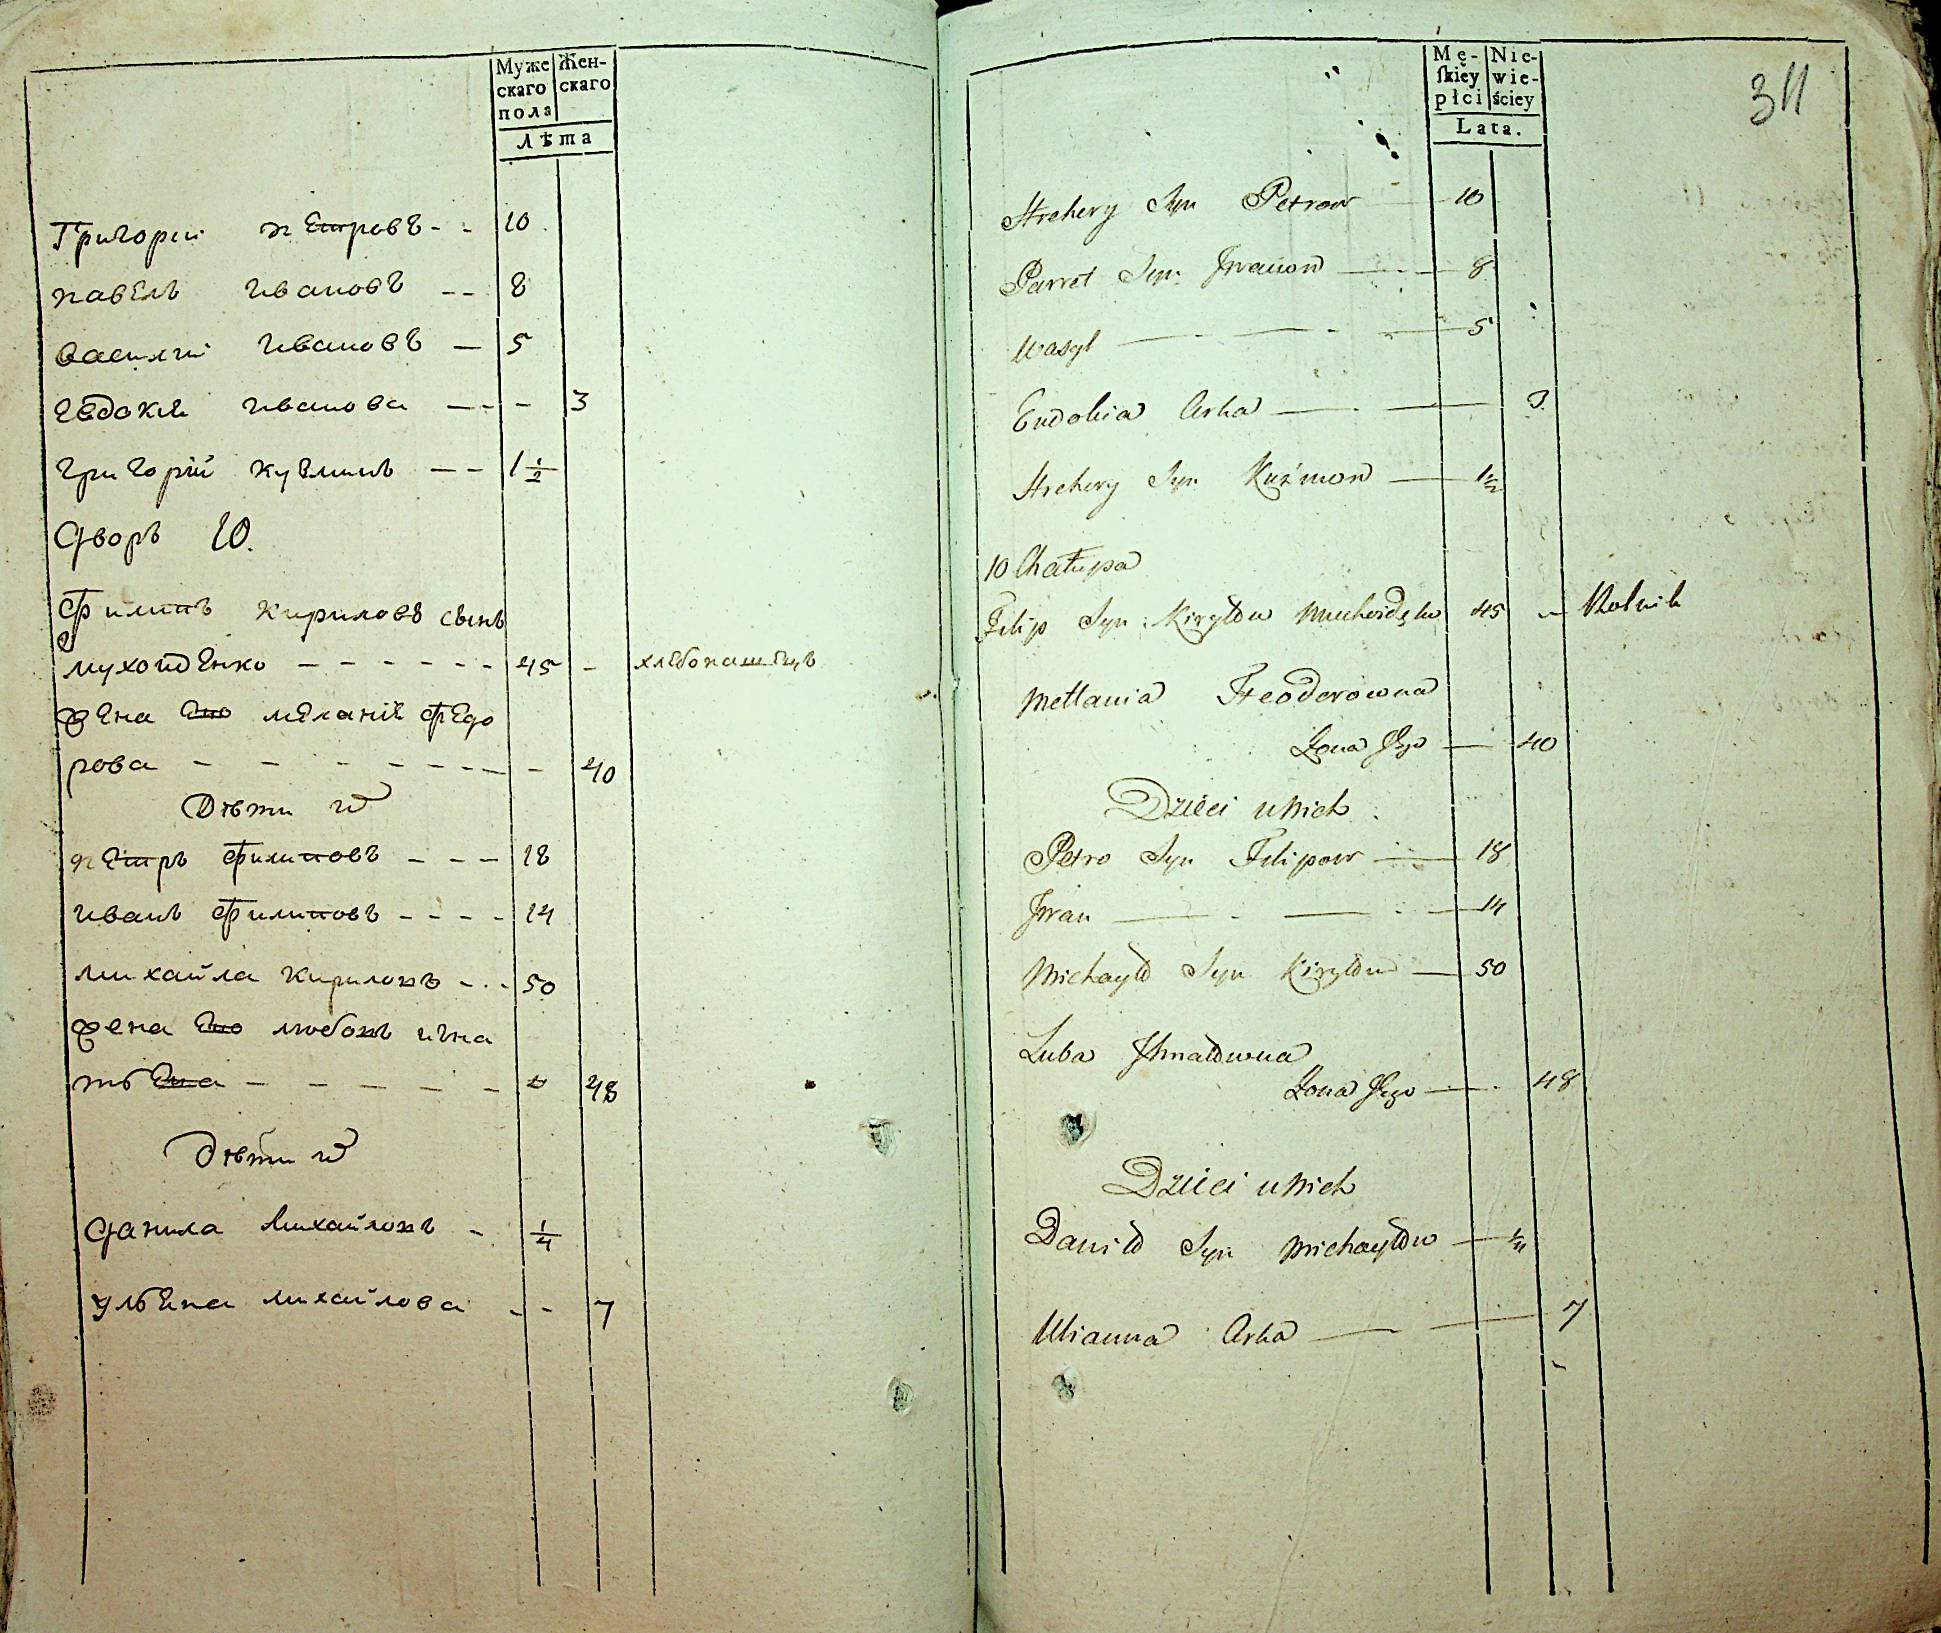 Муже Жен-
скаго скаго
пола
лѣта
Григорiи петровъ - - 10
павелъ ивановъ - - 8
василiи ивановъ - 5
евдокия иванова - - - 3
григорiй кузминъ - - 1 1/2
Дворъ 10.
Филипъ кириловъ сынъ
мухоиденко - - - - - - 45 - хлебопашецъ
жена его меланiя федо
рова - - - - - - - - 40
Дѣти ихъ
петръ филиповъ - - - 18
иванъ филиповъ - - - - 14
михайла кириловъ - - - 50
жена его любовъ игна
тьева - - - - - 48
Дѣти ихъ
данила михайловъ - 1/4
ульяна михайлова - - 7
Mę- Nie-
ſkiéy wie-
płci ściey
Lata.
311
Hrehery Syn Petrow — 10
Pawel Syn Iwanow — 8
Wasyl — 5
Eudokia Curka — 3
Hrehery Syn Kuźmow — 1 1/2
10 Chałupa
Filip Syn Kiryłow Muchoidęko 45 - Rolnik
Mellania Fteodorowna
Żona Jego — 40
Dzieci u Nich
Petro Syn Filipow — 18
Jwan — 14
Michayło Syn Kiryłow — 50
Luba Ihnatowna
Żona Jego — 48
Dzieci u Nich
Daniło Syn Michayłow — 1/4
Ulianna Curka — 7